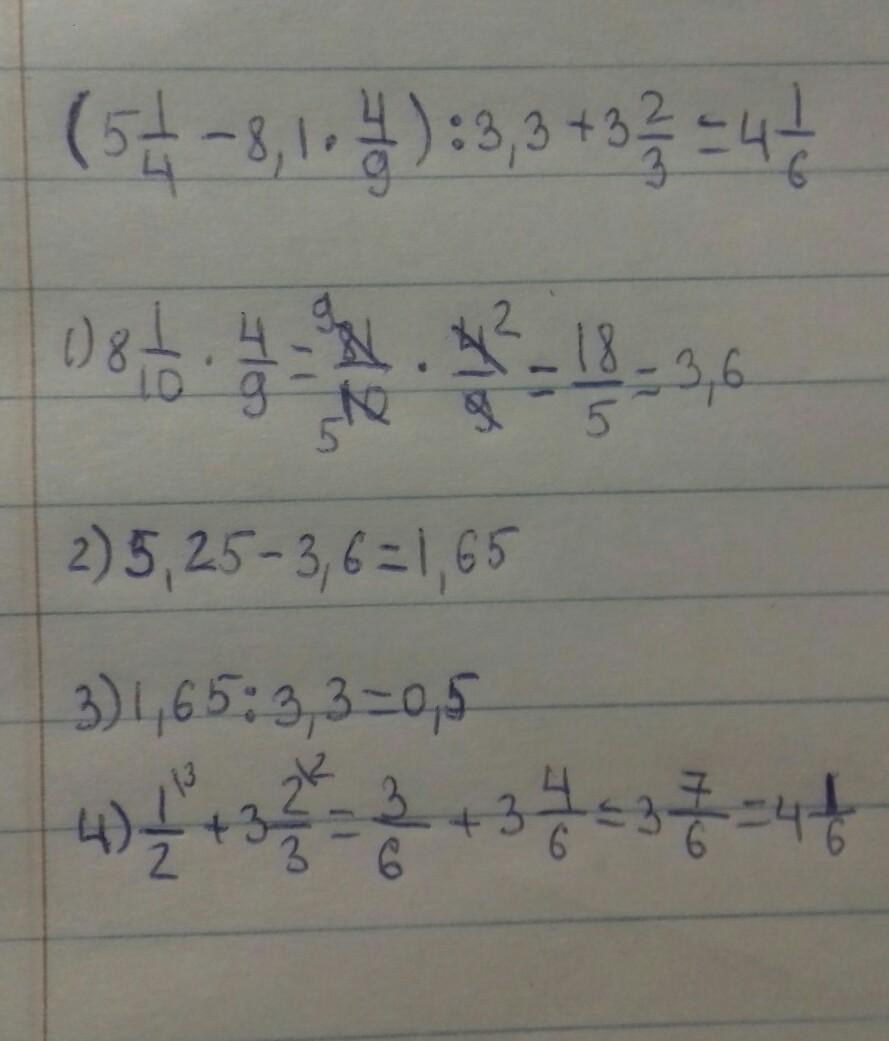 (5 1/4 - 8,1 · 4/9) : 3,3 + 3 2/3 = 4 1/6
1) 8 1/10 · 4/9 = 9 81/10 5 · 4/9 2 = 18/5 = 3,6
2) 5,25 - 3,6 = 1,65
3) 1,65 : 3,3 = 0,5
4) 1/2 \3 + 3 2/3 \2 = 3/6 + 3 4/6 = 3 7/6 = 4 1/6